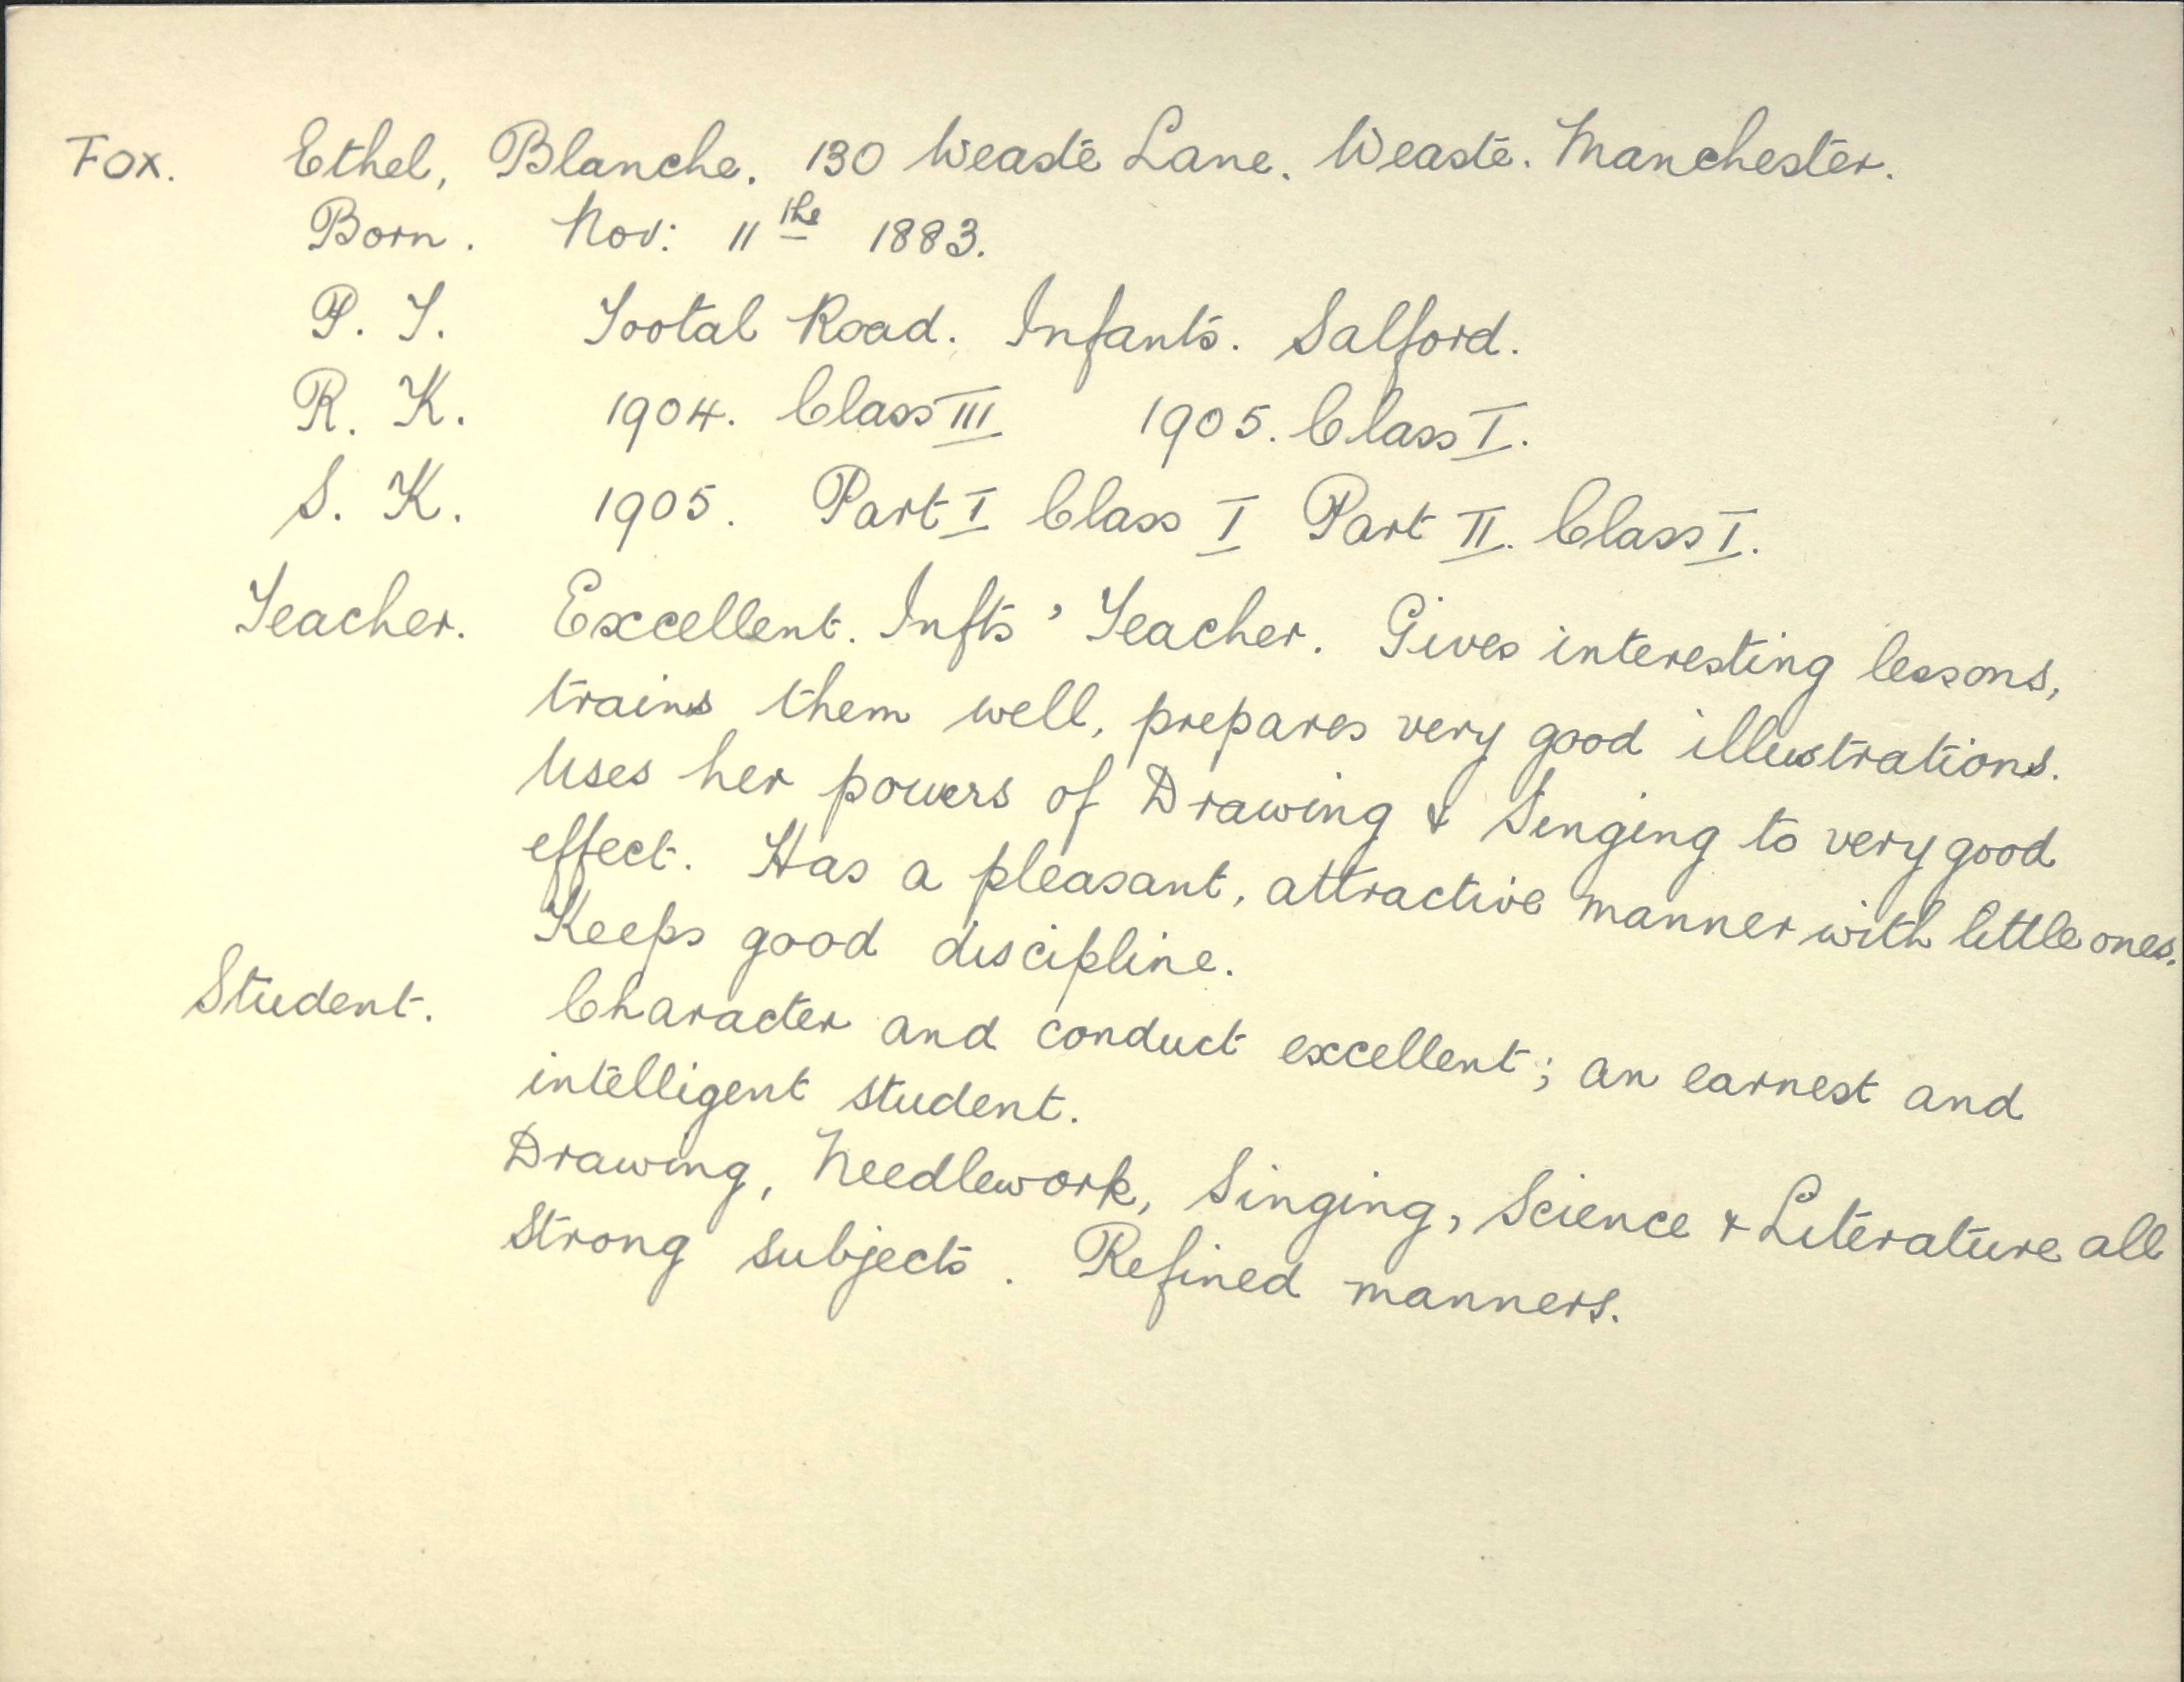 Fox. Ethel, Blanche. 130 Weaste Lane. Weaste. Manchester.
Born. Nov: 11th 1883.
P. T. Tootal Road. Infants. Salford.
R. K. 1904. Class III 1905. Class I.
S. K. 1905. Part I Class I Part II. Class I.
Teacher. Excellent. Infts' Teacher. Gives interesting lessons,
trains them well, prepares very good illustrations.
Uses her powers of Drawing & Singing to very good
effect. Has a pleasant, attractive manner with little ones.
Keeps good discipline.
Student. Character and conduct excellent; an earnest and
intelligent student.
Drawing, Needlework, Singing, Science & Literature all
strong subjects. Refined manners.